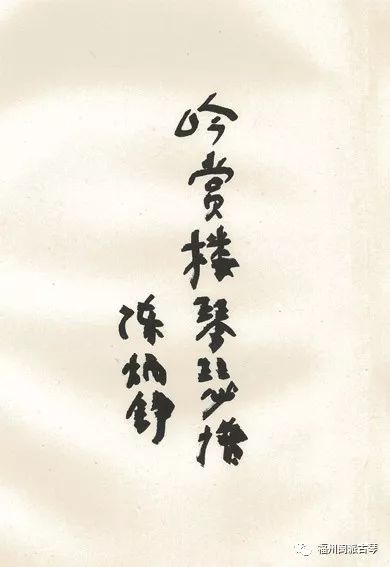 吟赏楼琴瑟谱
陈炳铮
福州闽派古琴